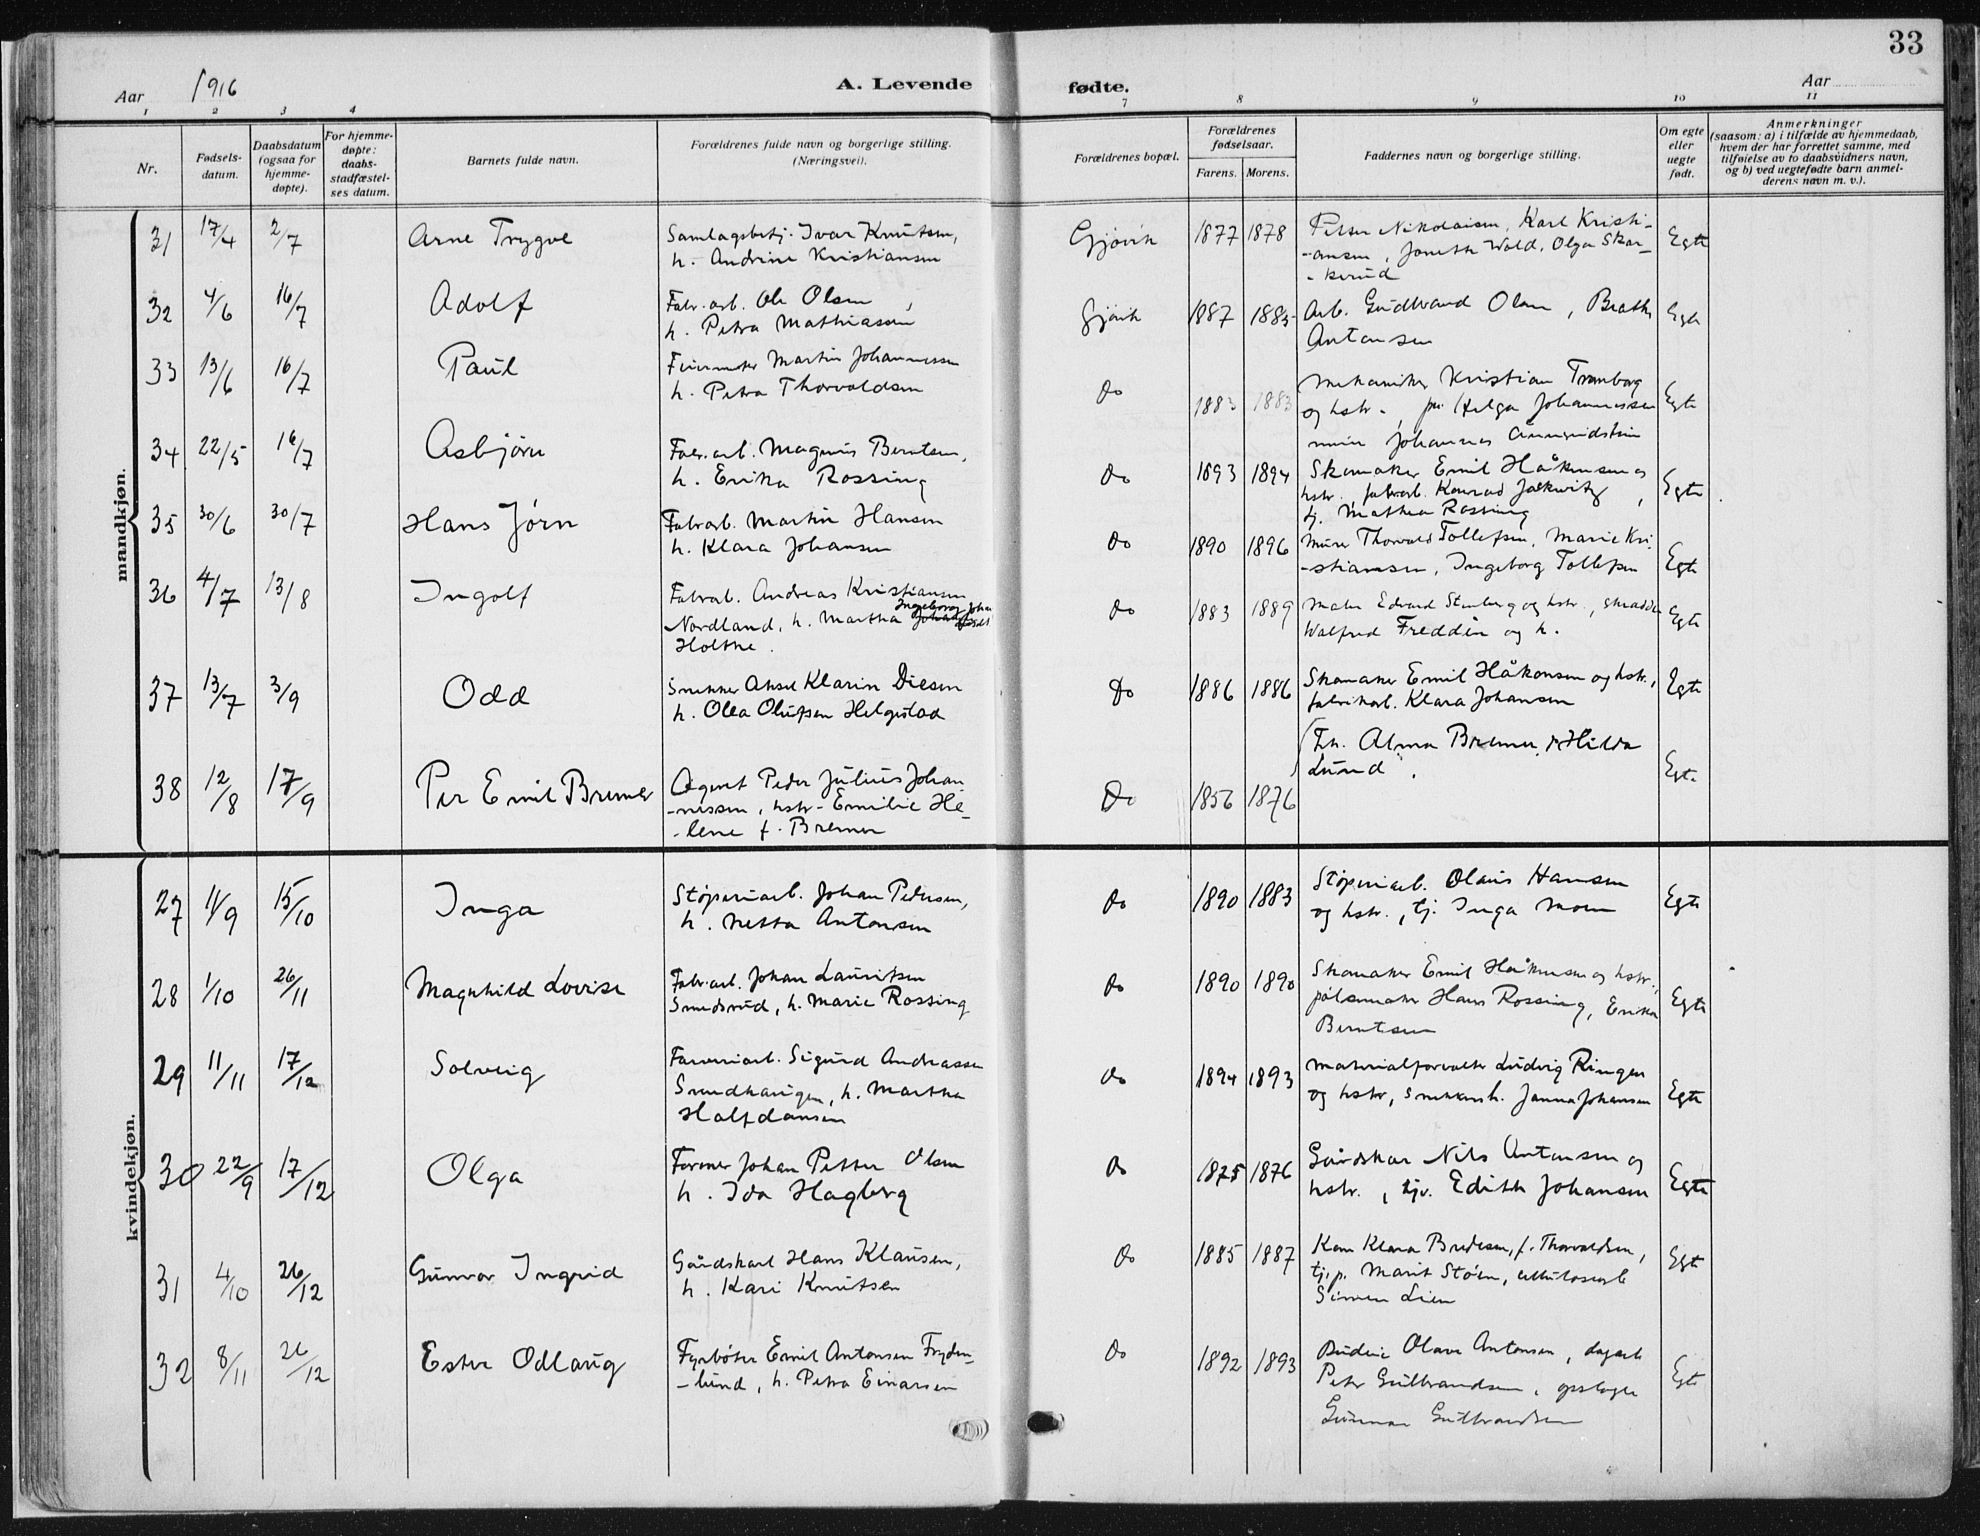 33
Aar 1916
A. Levende
fødte.
Aar
1 2 3 4
7 8 9 10 11
Nr.
Fødsels-
datum.
Daabsdatum
(ogsaa for
hjemme-
døpte).
For hjemme-
døpte:
daabs-
stadfæstel-
ses datum.
Barnets fulde navn.
Forældrenes fulde navn og borgerlige stilling.
(Næringsvei).
Forældrenes bopæl.
Forældrenes
fødselsaar.
Farens. Morens.
Faddernes navn og borgerlige stilling.
Om egte
eller
uegte
født.
Anmerkninger
(saasom: a) i tilfælde av hjemmedaab,
hvem der har forrettet samme, med
tilføielse av to daabsvidners navn,
og b) ved uegtefødte barn anmel-
derens navn m. v.).
mandkjøn.
31 17/4 2/7 Arne Trygve
Samlagsbetj. Ivar Knutsen,
h. Andrine Kristiansen
Gjøvik 1877 1878
Petter Nikolaisen, Karl Kristi-
-ansen, Wold, Olga Skar-
-kerud
Egte
32 4/6 16/7 Adolf
Fabr.arb. Ole Olsen,
h. Petra Mathiassen
Gjøvik 1887 1885
Arb. Gudbrand Olsen,
Antonsen
Egte
33 13/6 16/7 Paul
Martin Johannessen
h. Petra Thorvaldsen
do 1883 1883
Mekaniker Kristian Tramborg
og hstr., Helga Johannessen
Johannes
Egte
34 22/5 16/7 Asbjørn
Fabr.arb. Magnus Berntsen,
h. Erika Rossing
do 1893 1894
Skomaker Emil Håkonsen og
hstr., fabrarb. Konrad
tj. Mathea Rossing
Egte
35 30/6 30/7 Hans Jørn
Fabrarb. Martin Hansen
h. Klara Johansen
do 1890 1896
Murer Thorvald Tollefsen, Marie Kri-
-stiansen, Ingeborg Tollefsen
Egte
36 4/7 13/8 Ingolf
Fabrarb. Andreas Kristiansen
Ingeborg
Nordland, h. Martha
Holthe.
do 1883 1889
Maler Edvard Stenberg og hstr., skrædder
Walfred Freddin og h.
Egte
37 13/7 3/9 Odd
Snekker Aksel Klarin Diesen
h. Olea Olufsen Helgestad
Do 1886 1886
Skomaker Emil Håkonsen og hstr.,
fabrikarb. Klara Johansen
Egte
38 12/8 17/9 Per Emil Bremer
Agent Peder Julius Johan-
-nessen, hstr. Emilie He-
-lene f. Bremer
Do 1856 1876
Frk. Alma Bremer, Hilda
Lund.
Egte
kvindekjøn.
27 11/9 15/10 Inga
Støperiarb. Johan Pedersen,
h. Netta Antonsen
do 1890 1883
Støperiarb. Olaus Hansen
og hstr., tj. Inga Moen
Egte
28 1/10 26/11 Magnhild Lovise
Fabr.arb. Johan Lauritsen
Smedsrud, h. Marie Rossing
do 1890 1890
Skomaker Emil Håkonsen og hstr.,
pølsemaker Hans Rossing, Erika
Berntsen
Egte
29 11/11 17/12 Solveig
Farveriarb. Sigurd Andreassen
Smedhaugen, h. Martha
Halfdansen
do 1894 1893
Materialforvalter Ludvig Ringen
og hstr, Janna Johansen
Egte
30 22/9 17/12 Olga
Former Johan Petter Olsen
h. Ida Hagberg
do 1875 1876
Gårdskar Nils Antonsen og
hstr., tjv. Edith Johansen
Egte
31 4/10 26/12 Gunvor Ingrid
Gårdskarl Hans Klausen,
h. Kari Knutsen
do 1885 1887
Kone Klara Bredesen, f. Thorvaldsen,
tj.p. Marit Støen,
Simen Lien
Egte
32 8/11 26/12 Ester Odlaug
Fyrbøter Emil Antonsen Fryden-
-lund, h. Petra Einarsen
do 1892 1893
Budeie Olava Antonsen, dagarb.
Peter Gulbrandsen,
Gunnar Gulbrandsen
Egte